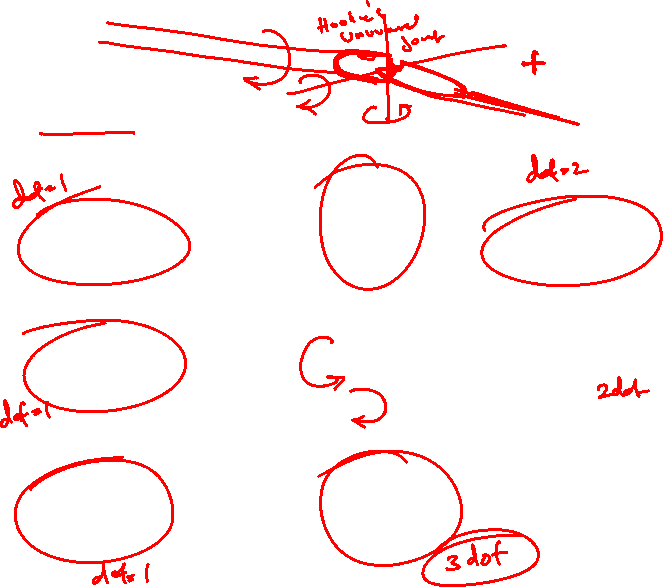 Hooke's
universal
joint
+
dof=1
dof=2
dof=1
2dof
3 dof
dof=1